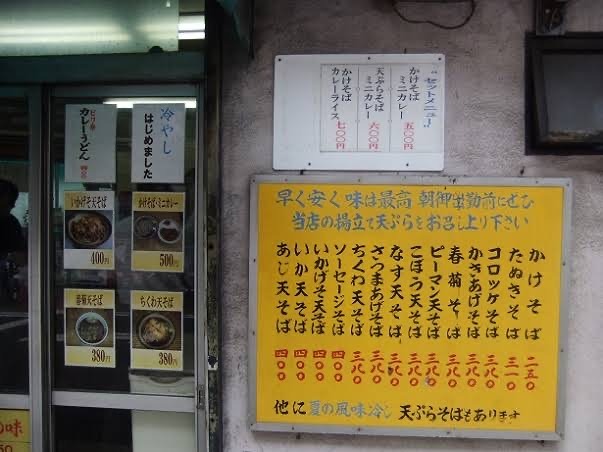 冷やし
はじめました
ピリ辛
カレーうどん
いかげそ天そば
400円
かけそば・ミニカレー
500円
春菊天そば
380円
ちくわ天そば
380円
"セットメニュー"
かけそば
ミニカレー
五〇〇円
天ぷらそば
ミニカレー
六〇〇円
かけそば
カレーライス
七〇〇円
早く安く味は最高 朝御出勤前にぜひ
当店の揚立て天ぷらをお召し上り下さい
かけそば 二五〇
たぬきそば 三一〇
コロッケそば 三八〇
かきあげそば 三八〇
春菊そば 三八〇
ピーマン天そば 三八〇
ごぼう天そば 三八〇
なす天そば 三八〇
さつまあげそば 三八〇
ちくわ天そば 三八〇
ソーセージそば 四〇〇
いかげそ天そば 四〇〇
いか天そば 四〇〇
あじ天そば 四〇〇
他に夏の風味冷し天ぷらそばもあります